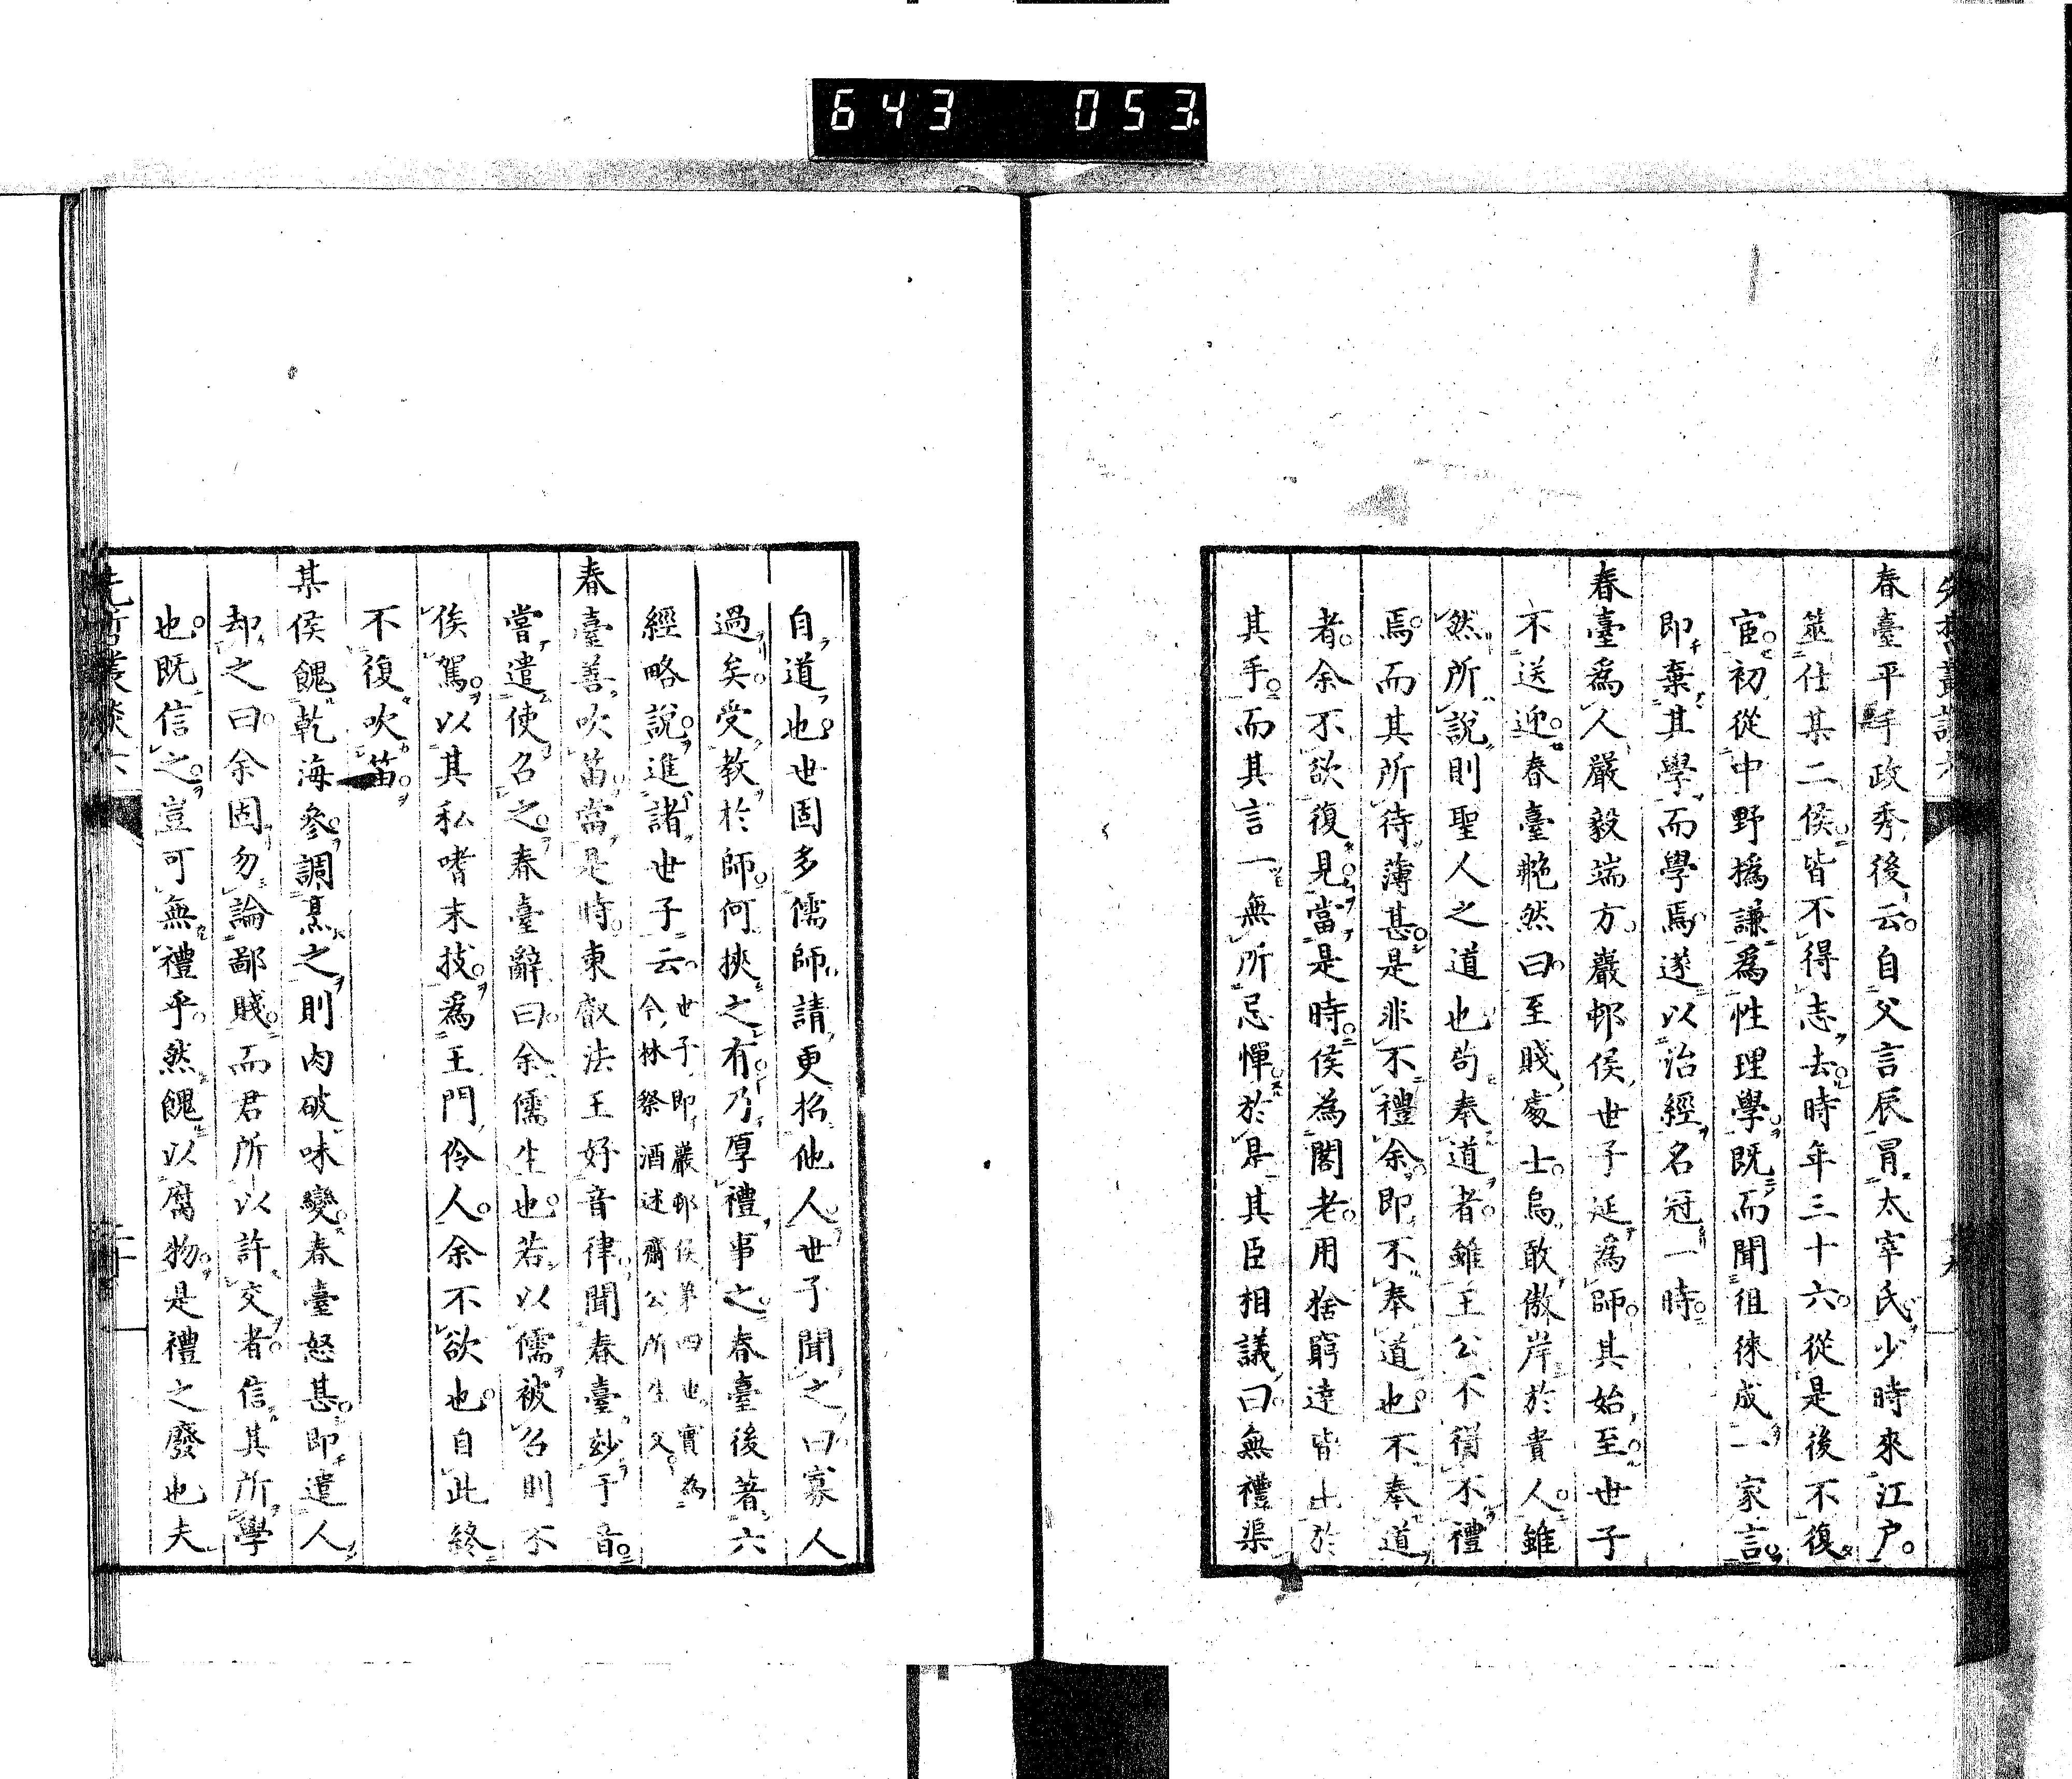 643 053
春臺平手政秀後云自父言辰冐太宰氏少時來江戸
筮仕某二侯皆不得志去時年三十六從是後不復
宦初從中野撝謙爲性理學既而聞徂徠成一家言
即棄其學而學焉遂以治經名冠一時
春臺爲人嚴毅端方巖邨侯世子延爲師其始至世子
不送迎春臺艴然曰至賤處士烏敢傲岸於貴人雖
然所說則聖人之道也苟奉道者雖王公不得不禮
焉而其所待薄甚是非不禮余即不奉道也不奉道
者余不欲復見當是時侯爲閣老用捨窮達皆出於
其手而其言一無所忌憚於是其臣相議曰無禮渠
自道也世固多儒師請更招他人世子聞之曰寡人
過矣受教於師何挾之有乃厚禮事之春臺後著六
經略說進諸世子云世子即巖邨侯弟四也實爲
令林祭酒述齋公所生父
春臺善吹笛當是時東叡法王好音律聞春臺玅于音
嘗遣使召之春臺辭曰余儒生也若以儒被召則不
俟駕以其私嗜末技爲王門伶人余不欲也自此終
不復吹笛
某侯餽乾海參調烹之則肉破味變春臺怒甚即遣人
却之曰余固勿論鄙賤而君所以許交者信其所學
也既信之豈可無禮乎然餽以腐物是禮之廢也夫
先哲叢談六